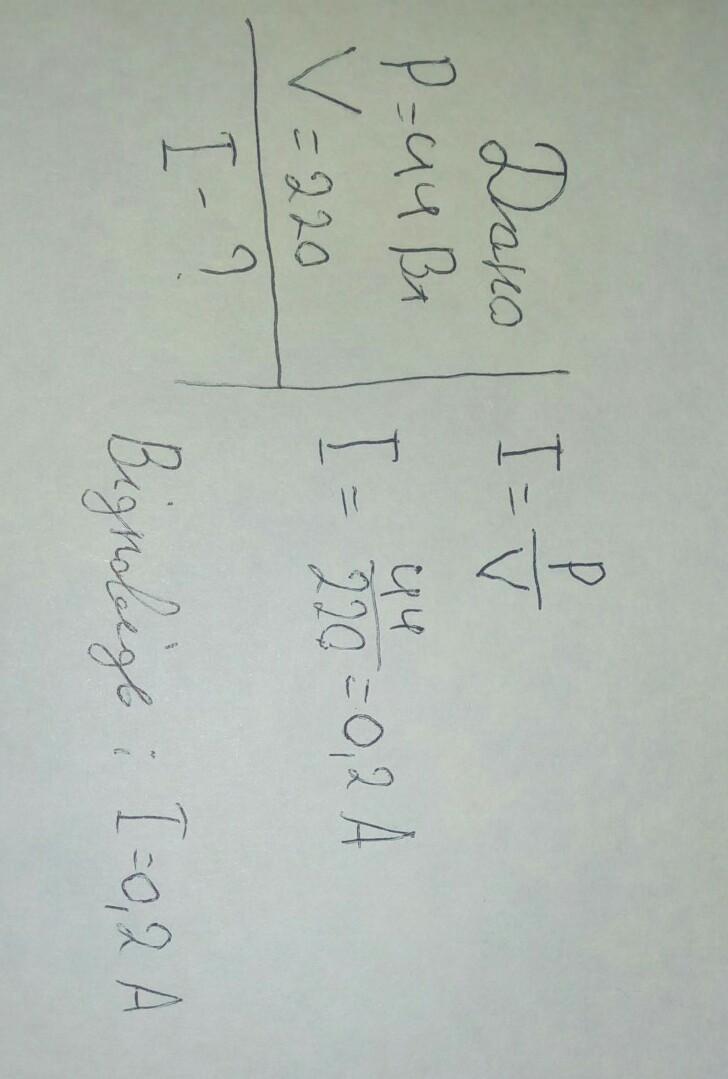 Дано
P=44 Вт
V=220
I-?
I=P/V
I=44/220=0,2 A
Відповідь: I=0,2 A